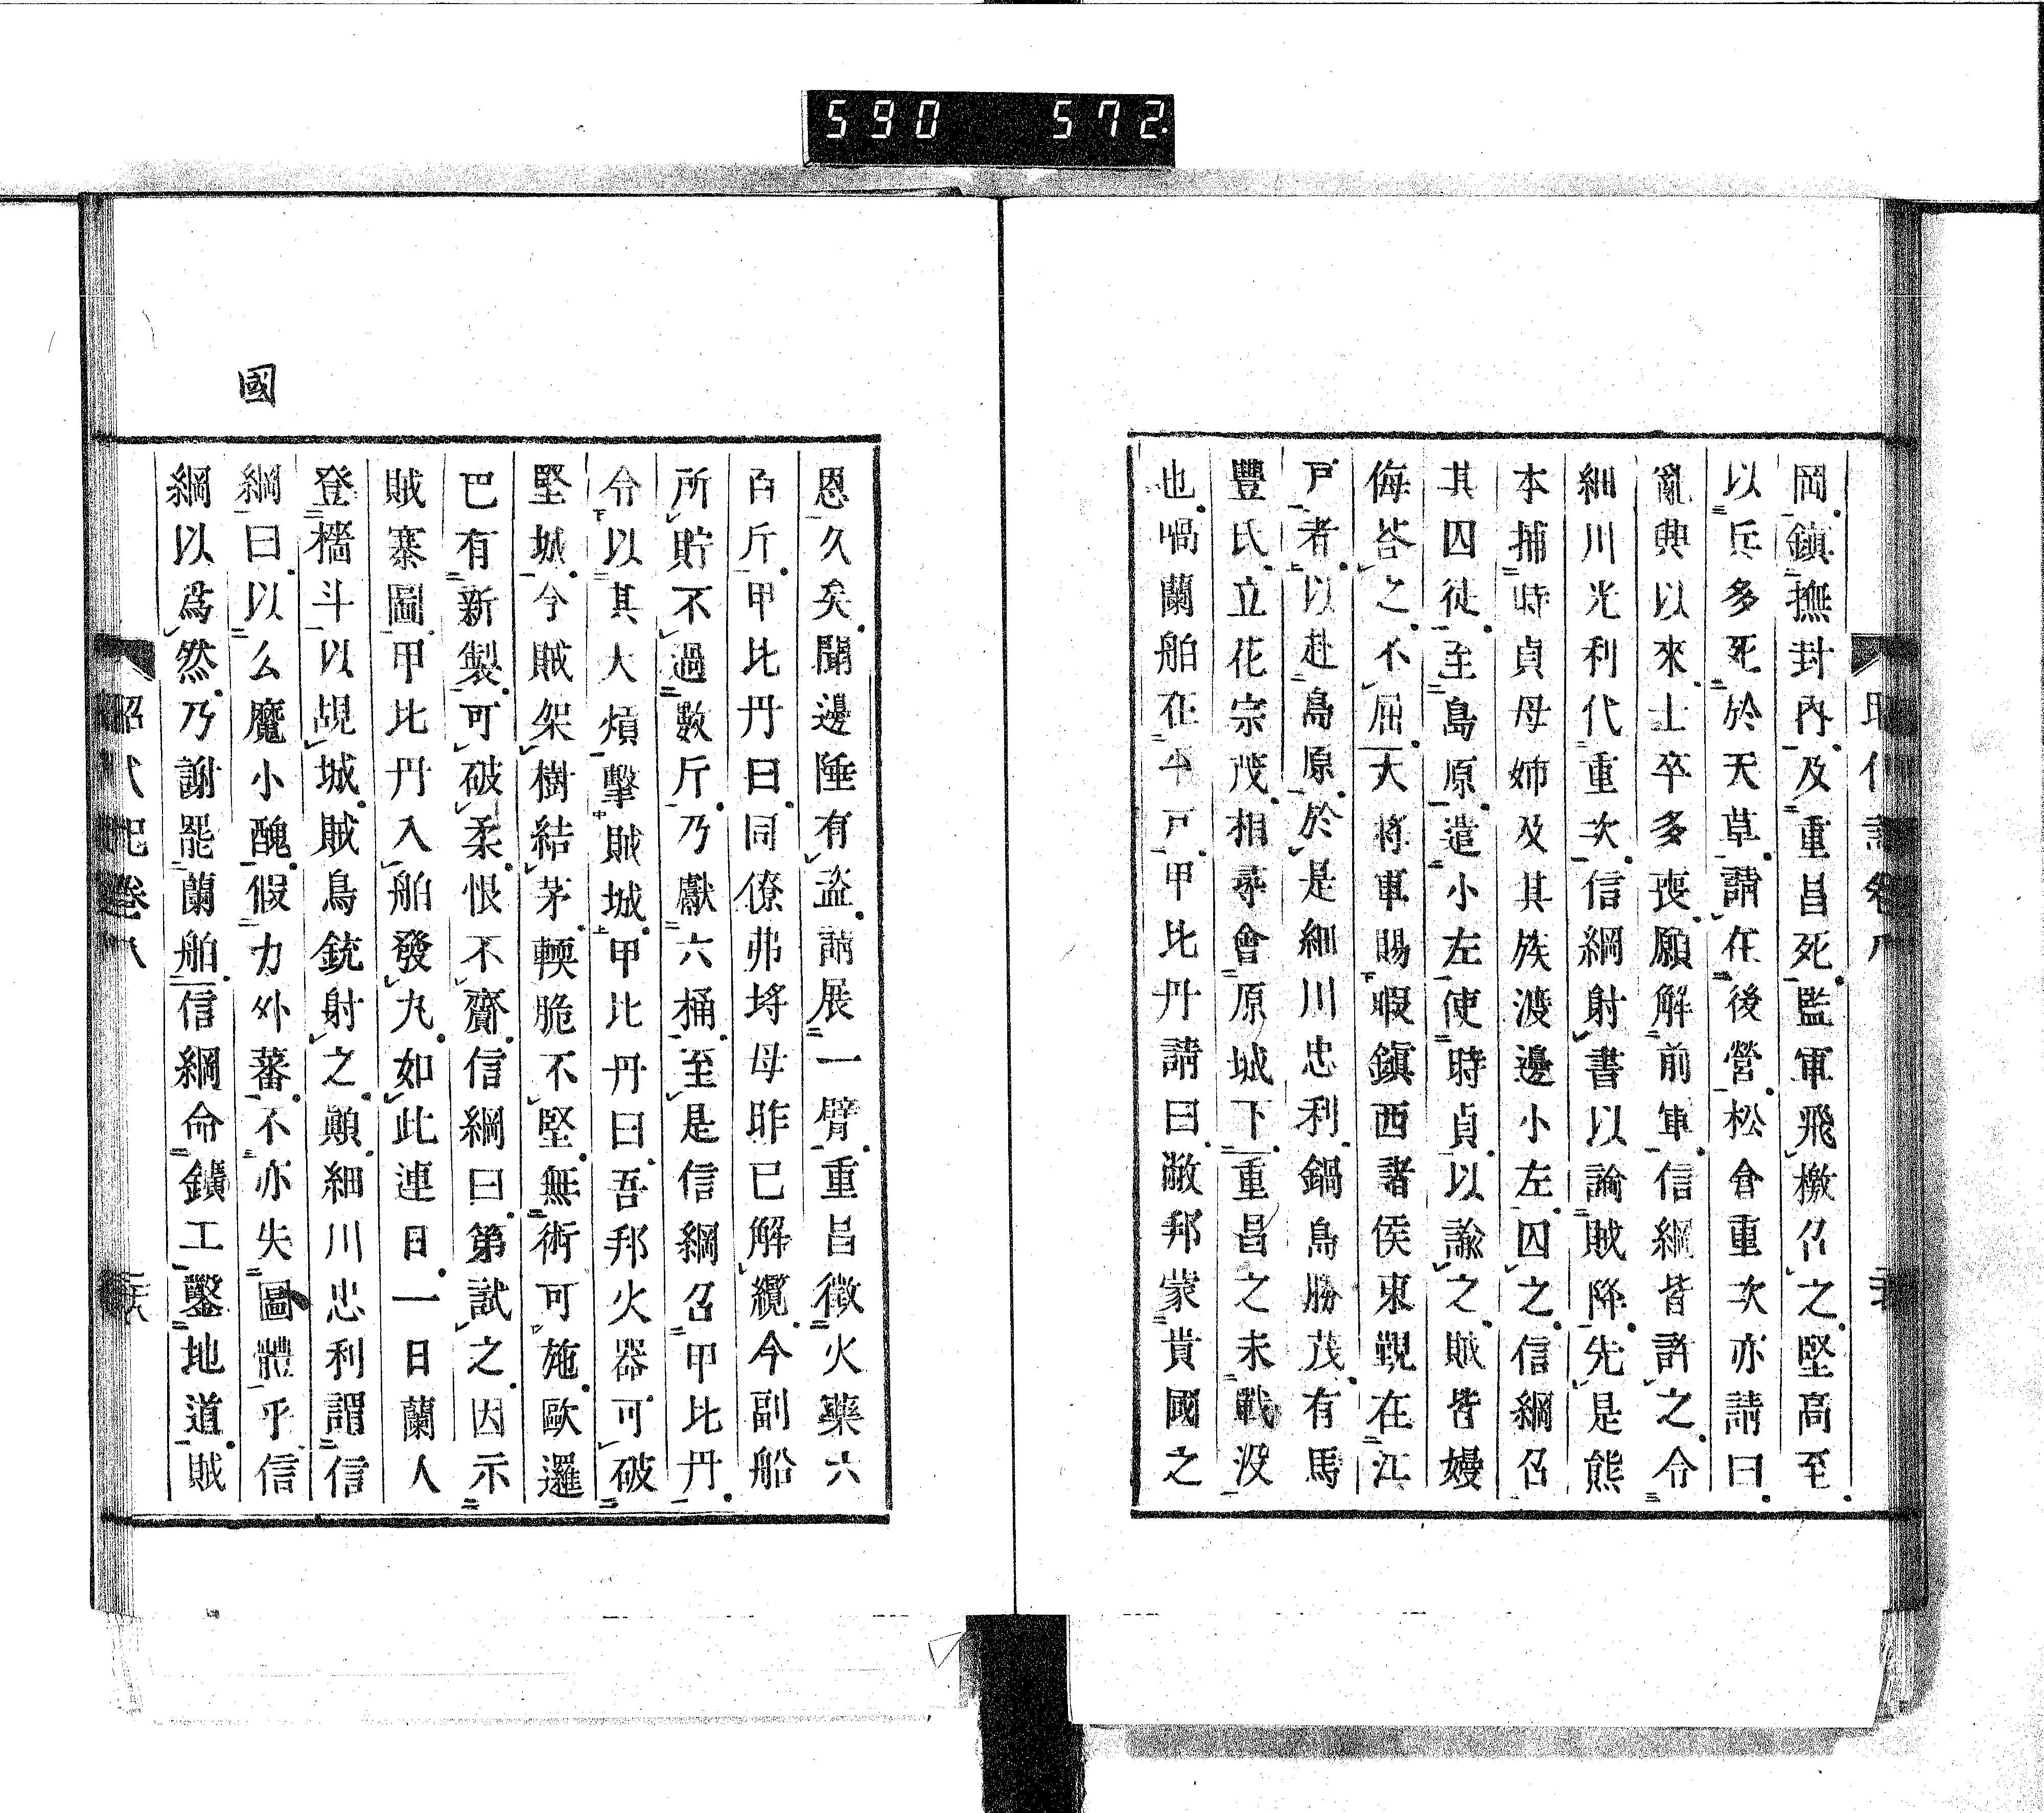 590 572
岡鎮撫封內及重昌死監軍飛檄召之堅高至
以兵多死於天草請在後營松倉重次亦請曰
亂興以來士卒多喪願解前軍信綱皆許之令
細川光利代重次信綱射書以論賊降先是熊
本捕時貞母姉及其族渡邊小左囚之信綱召
其囚徒至島原遣小左使時貞以諭之賊皆嫚
侮答之不屈大將軍賜暇鎮西諸侯東覲在江
戶者以赴島原於是細川忠利鍋島勝茂有馬
豐氏立花宗茂相尋會原城下重昌之未戰沒
也喎蘭舶在平戶甲比丹請曰敝邦蒙貴國之
恩久矣聞邊陲有盜請展一臂重昌徵火藥六
百斤甲比丹曰同僚弗埓母昨已解纜今副船
所貯不過數斤乃獻六桶至是信綱召甲比丹
令以其大熕擊賊城甲比丹曰吾邦火器可破
堅城今賊架樹結茅輭脆不堅無術可施歐邏
巴有新製可破柔恨不齎信綱曰第試之因示
賊寨圖甲比丹入舶發丸如此連日一日蘭人
登檣斗以覘城賊鳥銃射之顚細川忠利謂信
綱曰以么魔小醜假力外蕃不亦失圖體乎信
綱以爲然乃謝罷蘭舶信綱命鑛工鑿地道賊
國
昭代記卷八